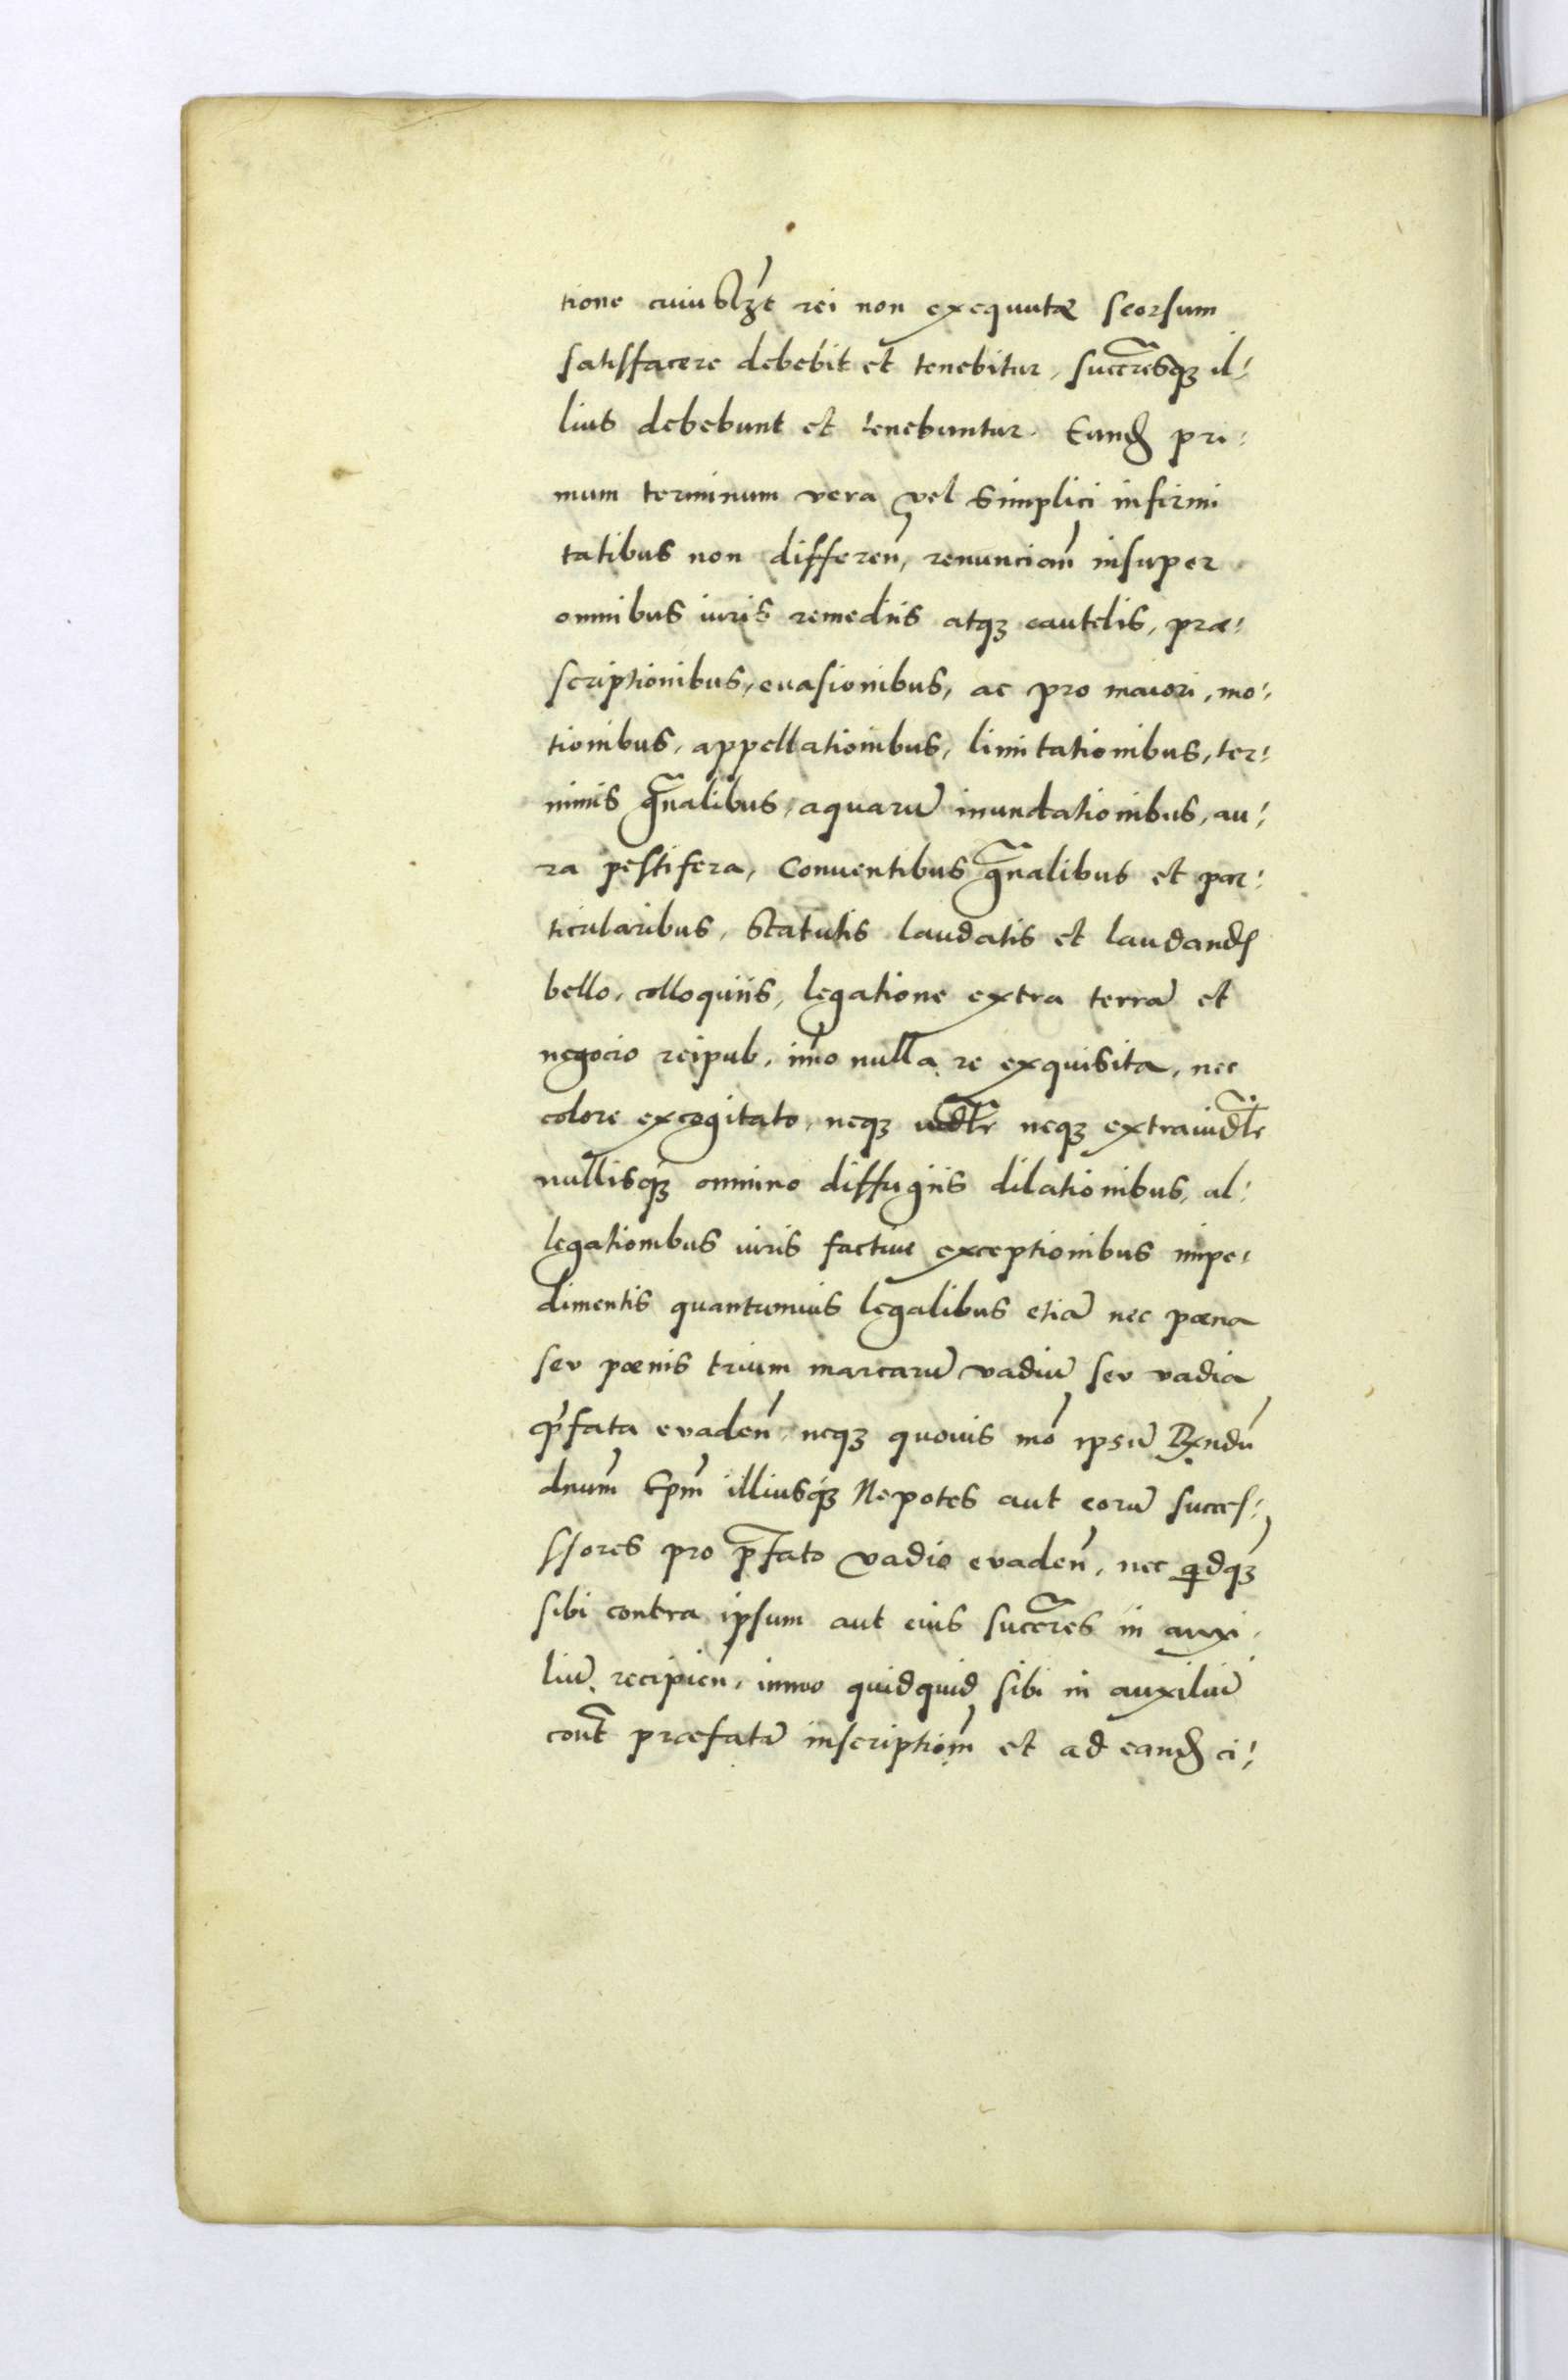 tione cuiuslꝫt rei non exequutæ seorsum
satisfacere debebit et tenebitur, succresqꝫ il⸗
lius debebunt et tenebuntur. Eunđ pri⸗
mum terminum vera vel simplici infirmi
tatibus non differeñ, renunciañ insuper
omnibus iuris remediis atqꝫ cautelis, præ⸗
scriptionibus, euasionibus, ac pro maiori, mo⸗
tionibus, appellationibus, limitationibus, ter⸗
minis gñalibus, aquarū inundationibus, au⸗
ra pestifera, Conuentibus gñalibus et par⸗
ticularibus, Statutis laudatis et laudanđ
bello, colloquiis, legatione extra terrā et
negocio reipub. im̃o nulla re exquisita, nec
colore excogitato, neqꝫ iudl̃r neqꝫ extraiudl̃r
nullisqꝫ omnino diffugiis dilationibus, al⸗
legationibus iuris factiue exceptionibus impe⸗
dimentis quantumuis legalibus etiā nec pœna
seu pœnis trium marcarū vadiū seu vadia
p̃fata evadeñ, neqꝫ quouis mõ ipsū Rx̃ndū
dnum̃ Epm̃ illiusqꝫ Nepotes aut eorū succes⸗
ssores pro p̃fato vadio evadeñ, nec qͥdqꝫ
sibi contra ipsum aut eius succr̃es in auxi⸗
liū recipieñ, immo quidquid sibi in auxiliū
cont̃ præfatā inscriptiom̃ et ad eanđ ci⸗